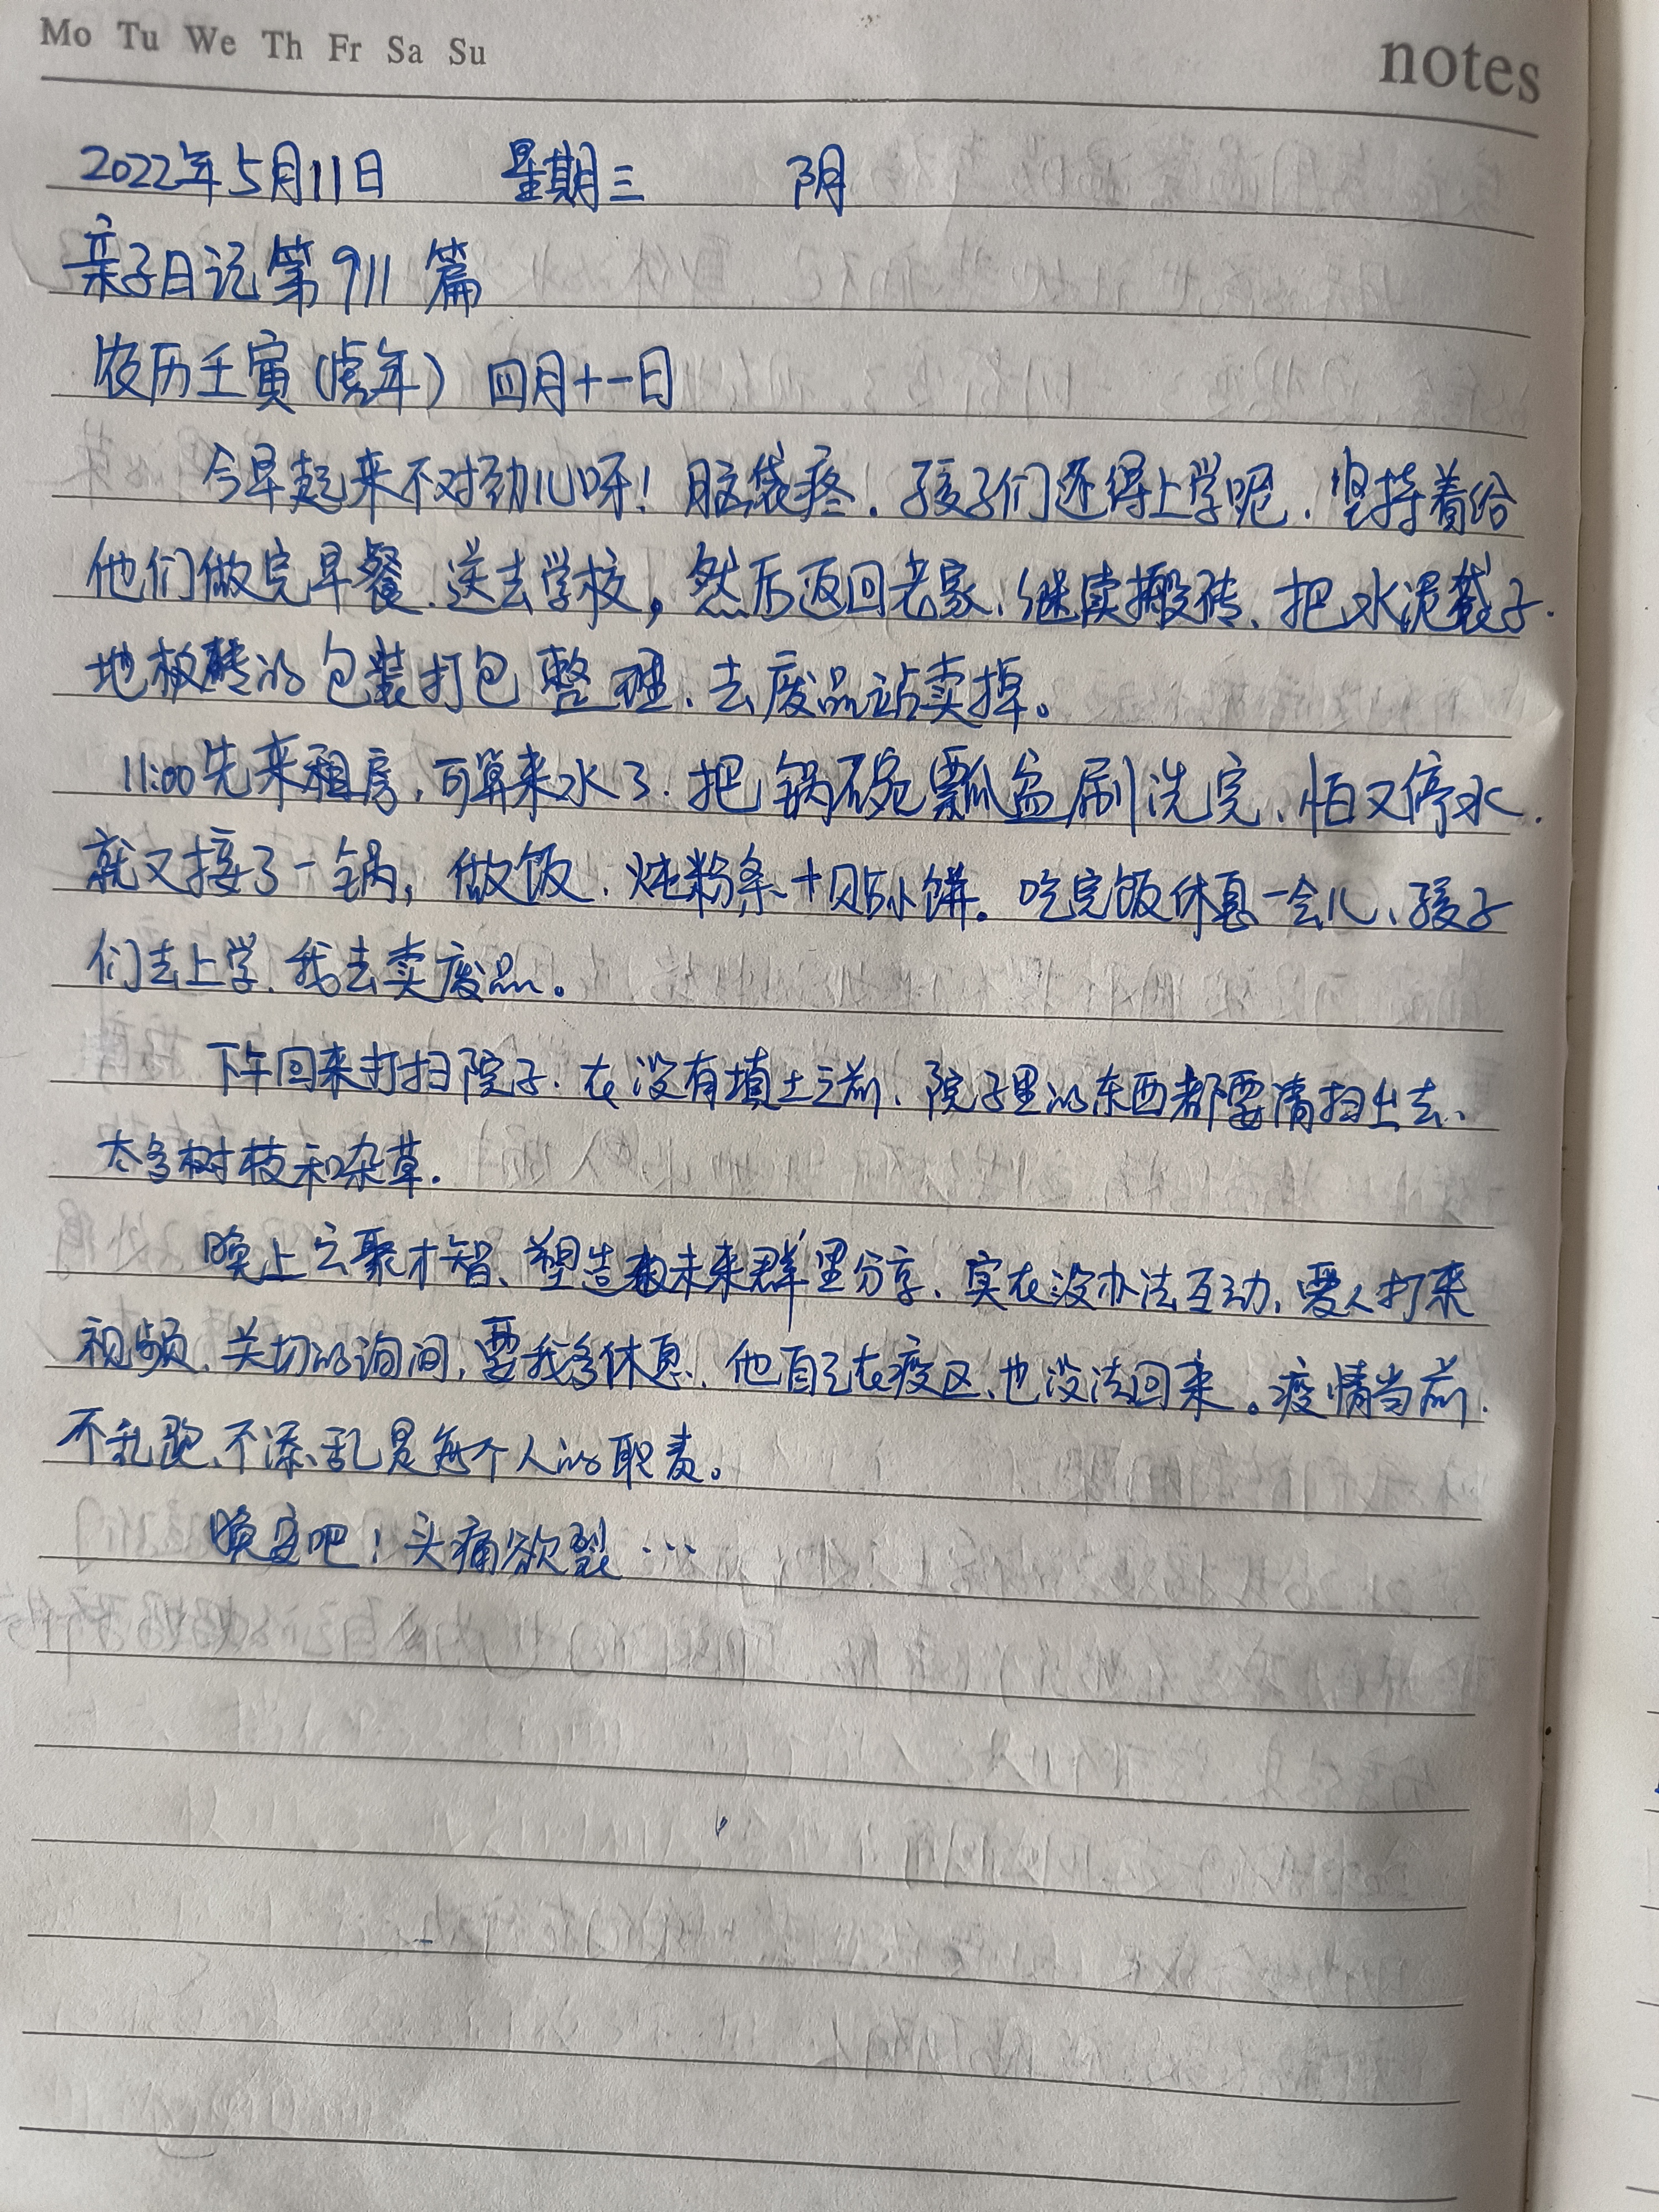 Mo Tu We Th Fr Sa Su
notes
2022年5月11日 星期三 阴
亲子日记第911篇
农历壬寅(虎年) 四月十一日
今早起来不对劲儿呀!脑袋疼.孩子们还得上学呢.坚持着给
他们做完早餐.送去学校,然后返回老家.继续搬砖、把水泥袋子.
地板砖的包装打包整理.去废品站卖掉。
11:00先来租房,可算来水了.把锅碗瓢盆刷洗完、怕又停水.
就又接了一锅,做饭.炖粉条+贴小饼。吃完饭休息一会儿、孩子
们去上学.我去卖废品。
下午回来打扫院子.在没有填土之前、院子里的东西都要清扫出去、
太多树枝和杂草.
晚上云聚才智、塑造未来群里分享、实在没办法互动,爱人打来
视频.关切的询问,要我多休息.他自己在疫区、也没法回来。疫情当前.
不乱跑、不添乱是每个人的职责。
晚安吧!头痛欲裂…